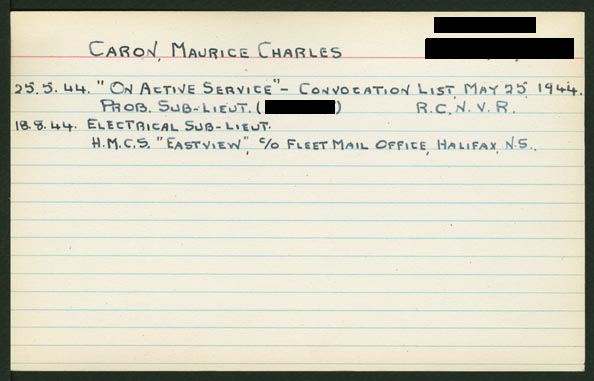 CARON, MAURICE CHARLES
25.5.44. "ON ACTIVE SERVICE" - CONVOCATION LIST, MAY 25, 1944.
PROB. SUB-LIEUT. ( ) R.C.N.V.R.
18.8.44. ELECTRICAL SUB-LIEUT.
H.M.C.S. "EASTVIEW", C/O FLEET MAIL OFFICE, HALIFAX, N.S..